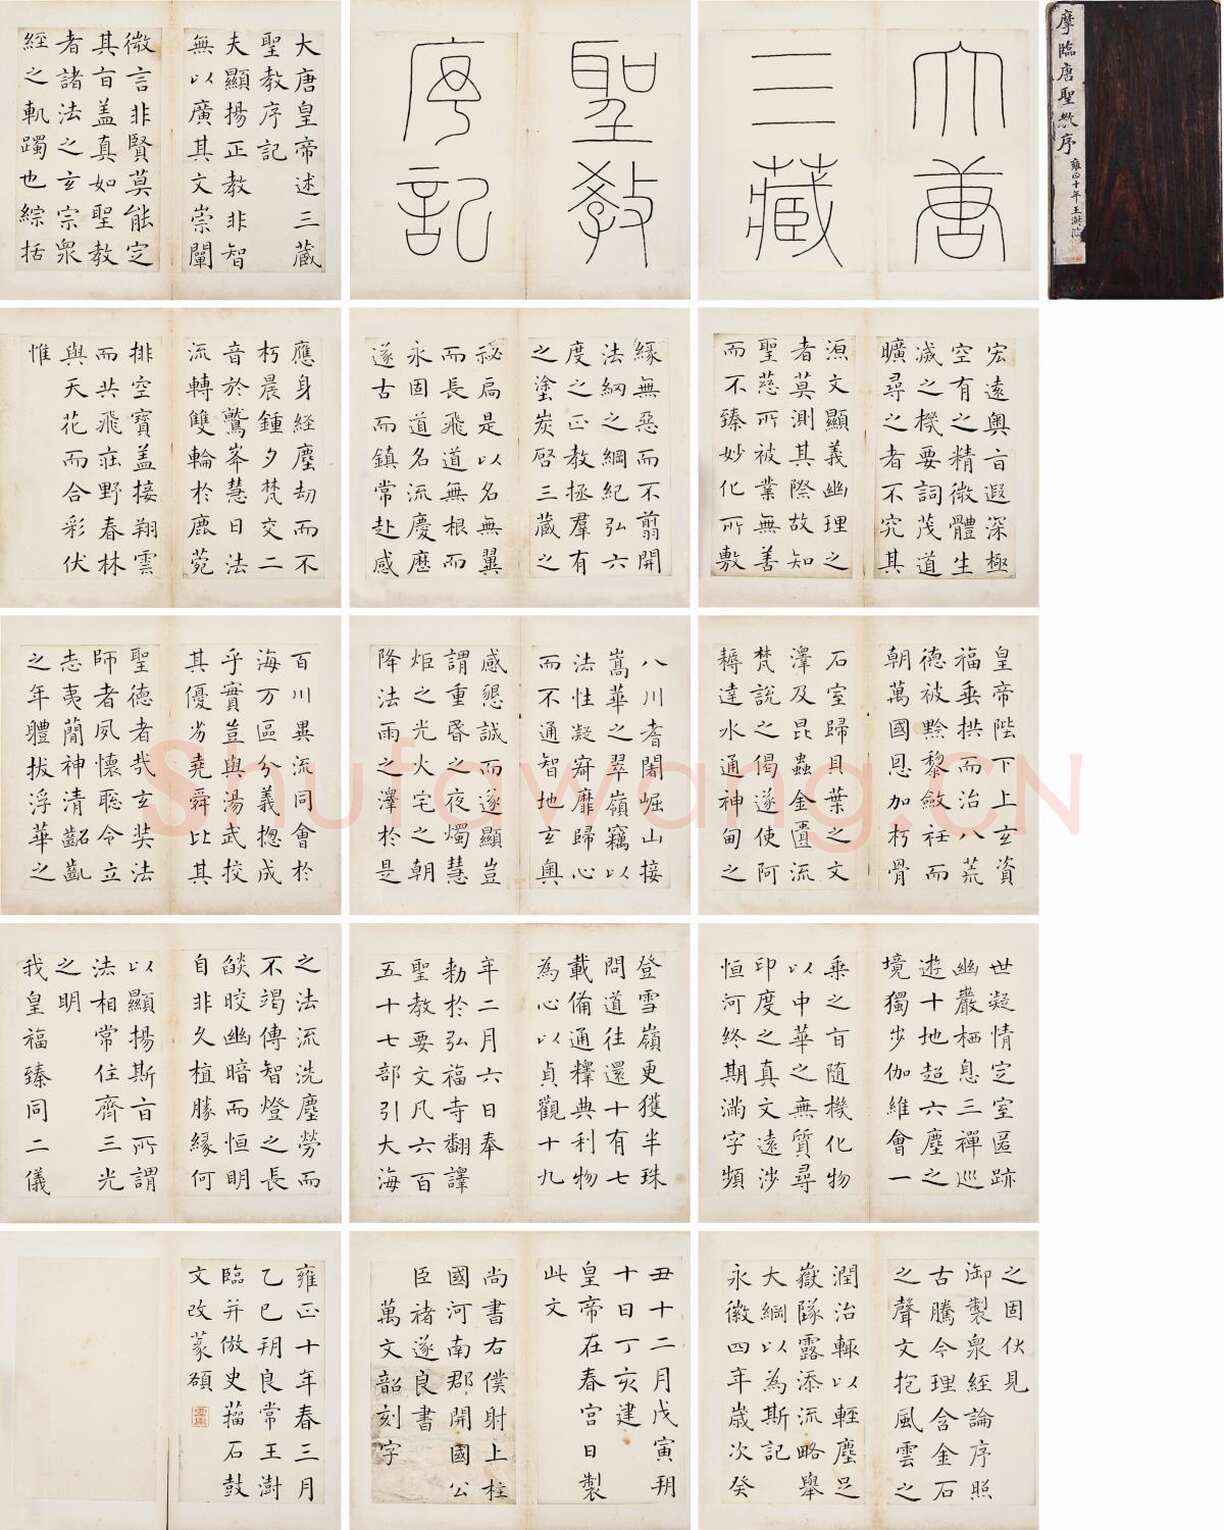 摩臨唐聖教序
雍正十年王澍
大唐
三藏
聖教
序記
大唐皇帝述三藏
聖教序記
夫顯揚正教非智
無以廣其文崇闡
微言非賢莫能定
其旨盖真如聖教
者諸法之玄宗衆
經之軌躅也綜括
宏遠奧旨遐深極
空有之精微體生
滅之機要詞茂道
曠尋之者不究其
源文顯義幽理之
者莫測其際故知
聖慈所被業無善
而不臻妙化所敷
緣無惡而不翦開
法網之綱紀弘六
度之正教拯羣有
之塗炭啓三藏之
祕扃是以名無翼
而長飛道無根而
永固道名流慶歷
遂古而鎮常赴感
應身經塵劫而不
朽晨鍾夕梵交二
音於鷲峯慧日法
流轉雙輪於鹿菀
排空寶盖接翔雲
而共飛莊野春林
與天花而合彩伏
惟
皇帝陛下上玄資
福垂拱而治八荒
德被黔黎斂衽而
朝萬國恩加朽骨
石室歸貝葉之文
澤及昆蟲金匱流
梵說之偈遂使阿
耨達水通神甸之
八川耆闍崛山接
嵩華之翠嶺竊以
法性凝寂靡歸心
而不通智地玄奧
感懇誠而遂顯豈
謂重昏之夜燭慧
炬之光火宅之朝
降法雨之澤於是
百川異流同會於
海万區分義揔成
乎實豈與湯武挍
其優劣堯舜比其
聖德者哉玄奘法
師者夙懷聡令立
志夷蕳神清齠齔
之年體拔浮華之
世凝情定室匿跡
幽巖栖息三禪巡
遊十地超六塵之
境獨步伽維會一
乗之旨随機化物
以中華之無質尋
印度之真文遠涉
恒河終期滿字頻
登雪嶺更獲半珠
問道往還十有七
載備通釋典利物
為心以貞觀十九
年二月六日奉
勅於弘福寺翻譯
聖教要文凡六百
五十七部引大海
之法流洗塵勞而
不竭傳智燈之長
燄皎幽暗而恒明
自非久植勝緣何
以顯揚斯旨所謂
法相常住齊三光
之明
我皇福臻同二儀
之固伏見
御製衆經論序照
古騰今理含金石
之聲文抱風雲之
潤治輒以輕塵足
嶽墜露添流略舉
大綱以為斯記
永徽四年歲次癸
丑十二月戊寅朔
十日丁亥建
皇帝在春宮日製
此文
尚書右僕射上柱
國河南郡開國公
臣褚遂良書
萬文韶刻字
雍正十年春三月
乙巳朔良常王澍
臨并倣史籕石鼓
文改篆額
Shufawang.CN